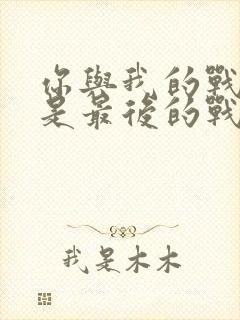 你與我的戰
是最後的戰
我是木木